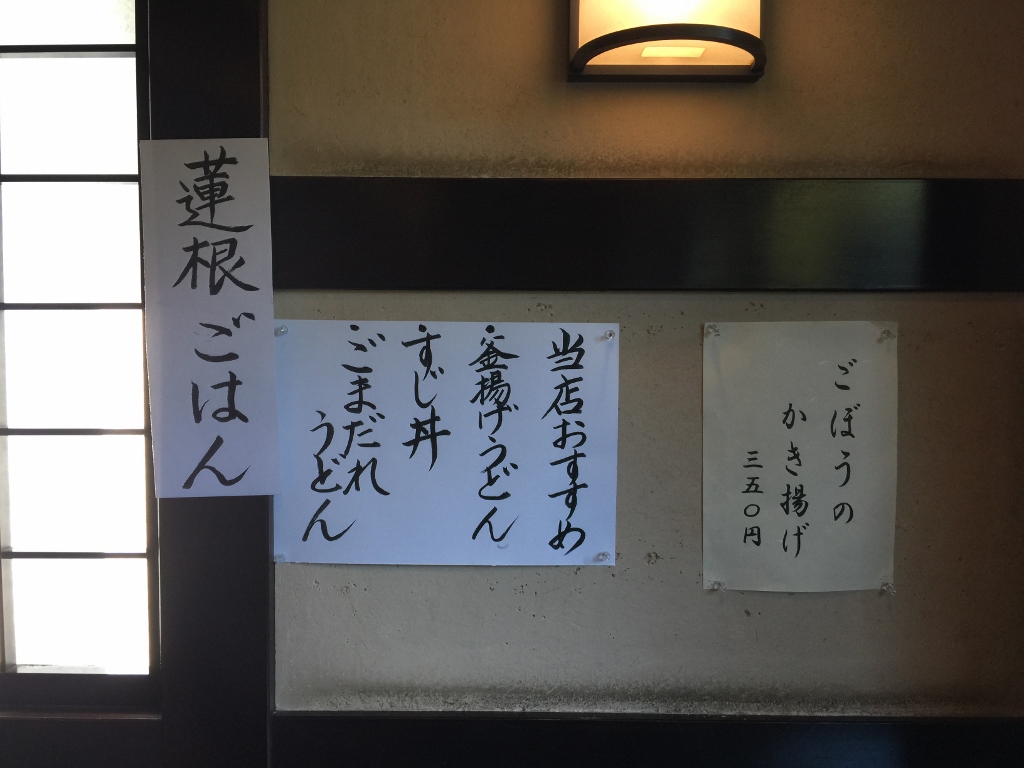 蓮根ごはん
当店おすすめ
釜揚げうどん
すじ丼
ごまだれ
うどん
ごぼうの
かき揚げ
三五〇円